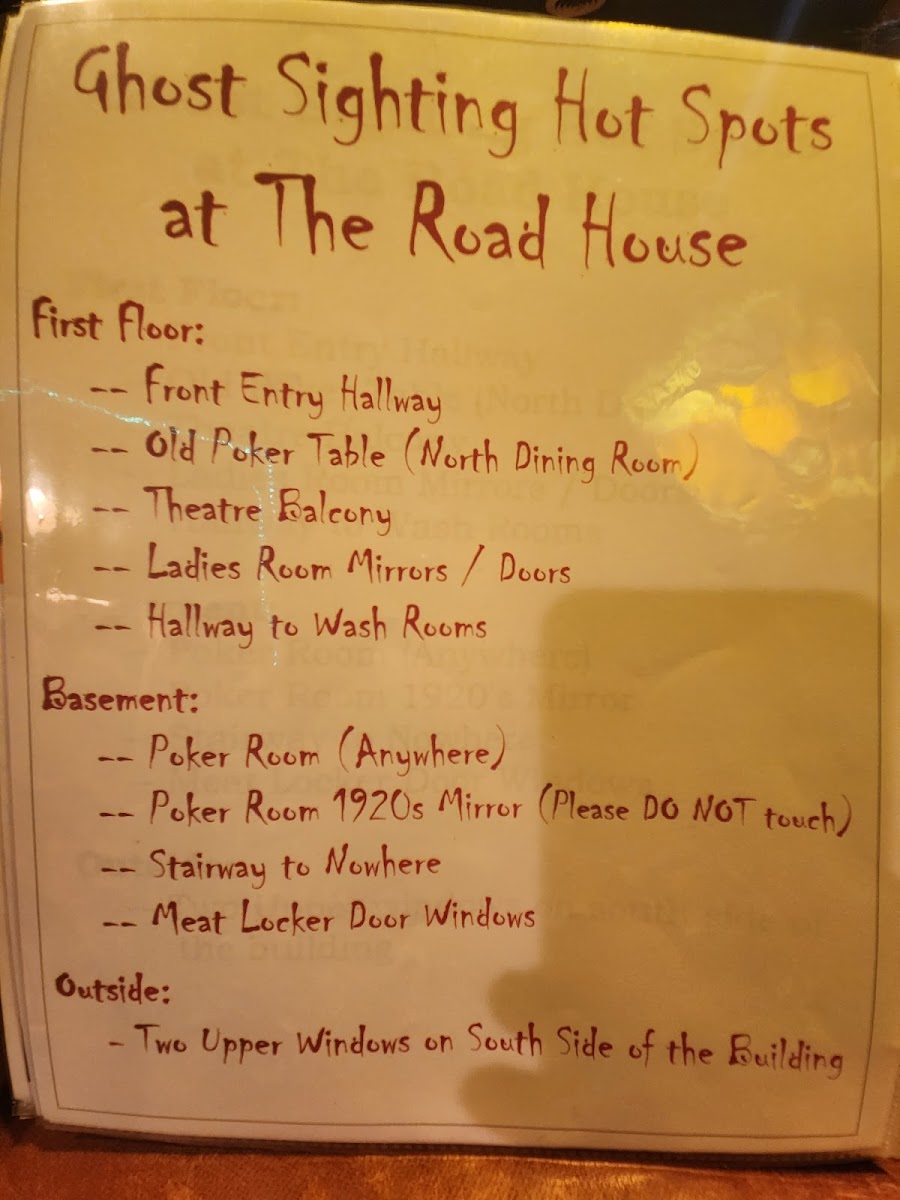 Ghost Sighting Hot Spots
at The Road House
First Floor:
-- Front Entry Hallway
-- Old Poker Table (North Dining Room)
-- Theatre Balcony
-- Ladies Room Mirrors / Doors
-- Hallway to Wash Rooms
Basement:
-- Poker Room (Anywhere)
-- Poker Room 1920s Mirror (Please DO NOT touch)
-- Stairway to Nowhere
-- Meat Locker Door Windows
Outside:
- Two Upper Windows on South Side of the Building